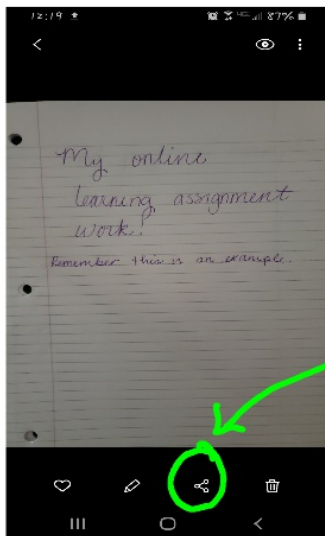 12:19
87%
My online
learning assignment
work!
Remember this is an example.